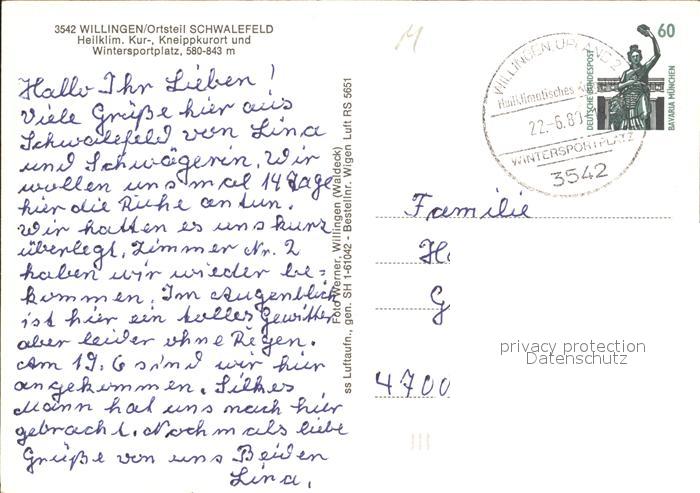 3542 WILLINGEN/Ortsteil SCHWALEFELD
Heilklim. Kur-, Kneippkurort und
Wintersportplatz, 580-843 m
Hallo Ihr Lieben!
Viele Grüße hier aus
Schwalefeld von Lina
und Schwägerin. Wir
wollen uns mal 14 Tage
hier die Ruhe antun.
Wir hatten es uns kurz
überlegt, Zimmer Nr. 2
haben wir wieder be=
kommen. Im Augenblick
ist hier ein tolles Gewitter
aber leider ohne Regen.
Am 19.6 sind wir hier
angekommen. Silkes
Mann hat uns nach hier
gebracht. Nochmals liebe
Grüße von uns Beiden
Lina.
Foto Werner, Willingen (Waldeck)
ss Luftaufn., gen. SH 1-61042 - Bestellnr. Wigen Luft RS 5651
WILLINGEN UPLAND 2
Heilklimatisches
22.-6.89
WINTERSPORTPLATZ
3542
60
DEUTSCHE BUNDESPOST
BAVARIA MÜNCHEN
Familie
H
G
4700
privacy protection
Datenschutz